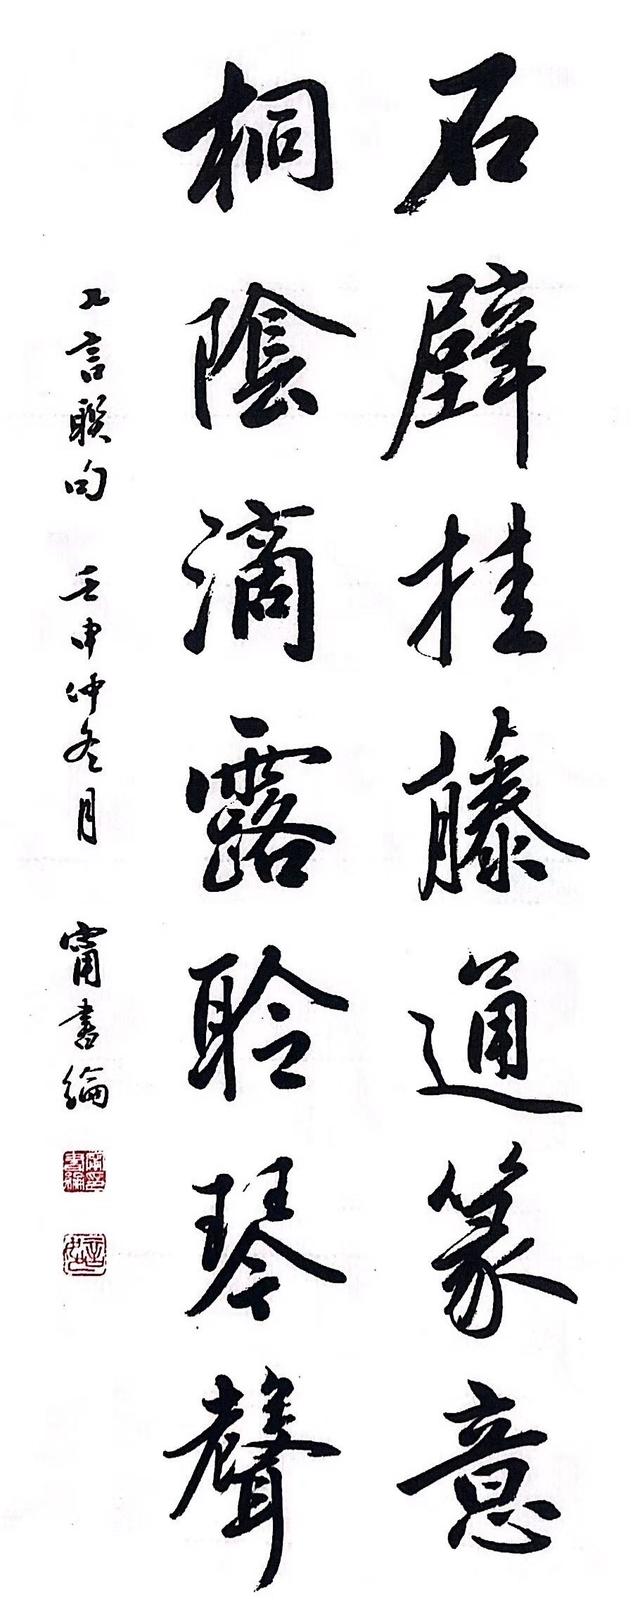 石壁挂藤通篆意
桐陰滴露聆琴聲
七言聯句 壬申仲冬月 甯書綸